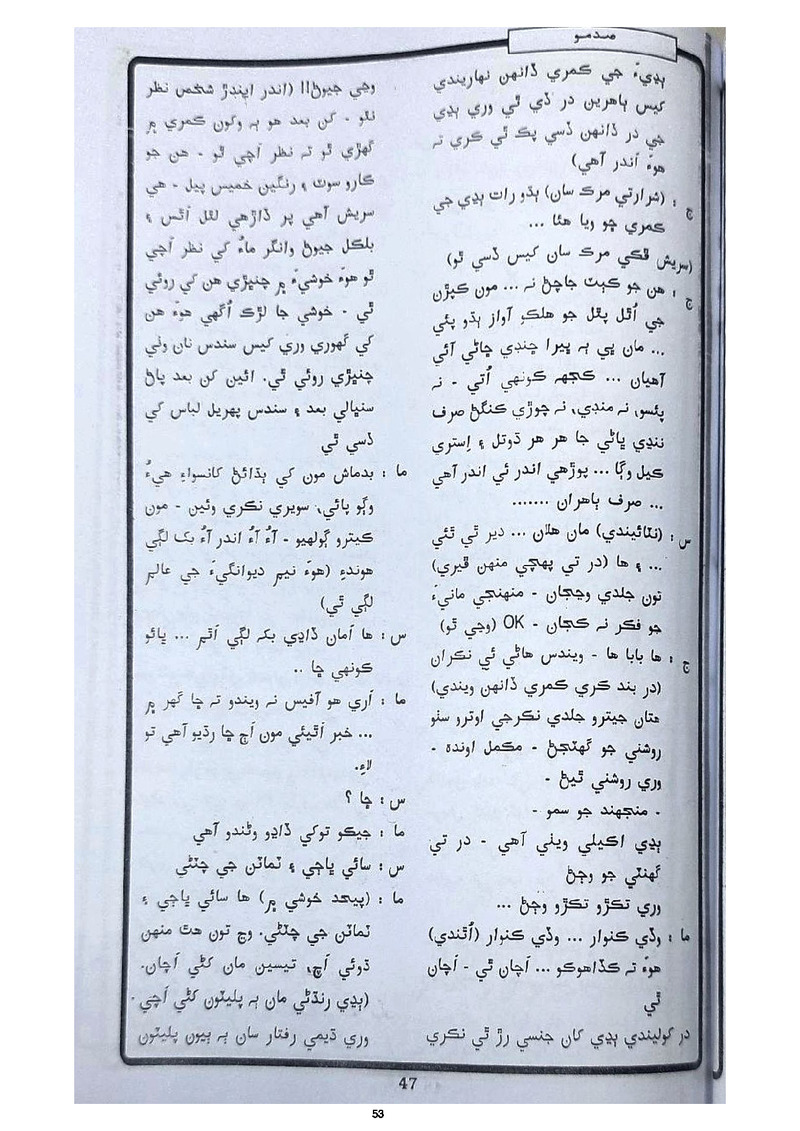 صدمو
ٻڍيءَ جي ڪمري ڏانهن نهاريندي
ڪيس ٻاهرين در ڏي ٿي وري ٻڍي
جي در ڏانهن ڏسي پڪ ٿي ڪري ته
هوءَ اندر آهي)
ج : (شرارتي مرڪ سان) ٻڌو رات ٻڍي جي
ڪمري ڇو ويا هئا ...
(سريش ڦڪي مرڪ سان کيس ڏسي ٿو)
ج : هن جو ڪٻٽ جاچڻ نه ... مون ڪپڙن
جي اُٿل پٿل جو هلڪو آواز ٻڌو پئي
... مان پي ٻه ڀيرا ڇنڊي ڇاڻي آئي
آهيان ... ڪجهه ڪونهي اُتي - نه
پئسو، نه منڊي، نه چوڙي ڪنگڻ صرف
ننڍي ڀائي جا هر هر ڌوتل ۽ اِستري
ڪيل وڳا ... پوڙهي اندر ئي اندر آهي
... صرف ٻاهران .......
س : (نٽائيندي) مان هلان ... دير ٿي ٿئي
... ۽ ها (در تي پهچي منهن ڦيري)
تون جلدي وڃجان - منهنجي مانيءَ
جو فڪر نه ڪجان - OK (وڃي ٿو)
ج : ها بابا ها - ويندس هاڻي ئي نڪران
(در بند ڪري ڪمري ڏانهن ويندي)
هتان جيترو جلدي نڪرجي اوترو سٺو
روشني جو گهٽجڻ - مڪمل اونده -
وري روشني ٿيڻ -
- منجهند جو سمو -
ٻڍي اڪيلي ويٺي آهي - در تي
گهنٽي جو وڄڻ
وري تڪڙو تڪڙو وڄڻ ...
ما : وڏي ڪنوار ... وڏي ڪنوار (اُٿندي)
هوءَ ته ڪڏاهوڪو ... اَچان ٿي - اَچان
ٿي
در کوليندي ٻڍي کان جنسي رڙ ٿي نڪري
وڃي جيوڻ!! (اندر ايندڙ شخص نظر
نٿو - کن بعد هو ٻه وکون ڪمري ۾
گهڙي ٿو ته نظر اَچي ٿو - هن جو
ڪارو سوٽ ۽ رنگين خميس پيل - هي
سريش آهي پر ڏاڙهي لٿل اَٿس ۽
بلڪل جيوڻ وانگر ماءُ کي نظر اَچي
ٿو هوءَ خوشيءَ ۾ چنبڙي هن کي روئي
ٿي - خوشي جا لڙڪ اُگهي هوءَ هن
کي گهوري وري کيس سندس نان وٺي
چنبڙي روئي ٿي. ائين کن بعد پاڻ
سنڀالي بعد ۽ سندس پهريل لباس کي
ڏسي ٿي
ما : بدماش مون کي ٻڌائڻ کانسواءِ هيءُ
وڳو پائي، سويري نڪري وئين - مون
ڪيترو ڳولهيو - آءُ آءُ اندر آءُ بک لڳي
هوندءِ (هوءَ نيم ديوانگيءَ جي عالم
لڳي ٿي)
س : ها اَمان ڏاڍي بکه لڳي اَٿم ... ڀائو
ڪونهي ڇا ..
ما : اَري هو آفيس نه ويندو ته ڇا گهر ۾
... خبر اَٿيئي مون اَڄ ڇا رڌيو آهي تو
لاءِ.
س : ڇا ؟
ما : جيڪو توکي ڏاڍو وڻندو آهي
س : سائي ڀاڄي ۽ ٽماٽن جي چٽڻي
ما : (بيحد خوشي ۾) ها سائي ڀاڄي ۽
ٽماٽن جي چٽڻي. وڃ تون هٿ منهن
ڌوئي اَچ، تيسين مان کڻي اَچان.
(ٻڍي رنڌڻي مان ٻه پليٽون کڻي اَچي.
وري ڌيمي رفتار سان ٻه ٻيون پليٽون
47
53